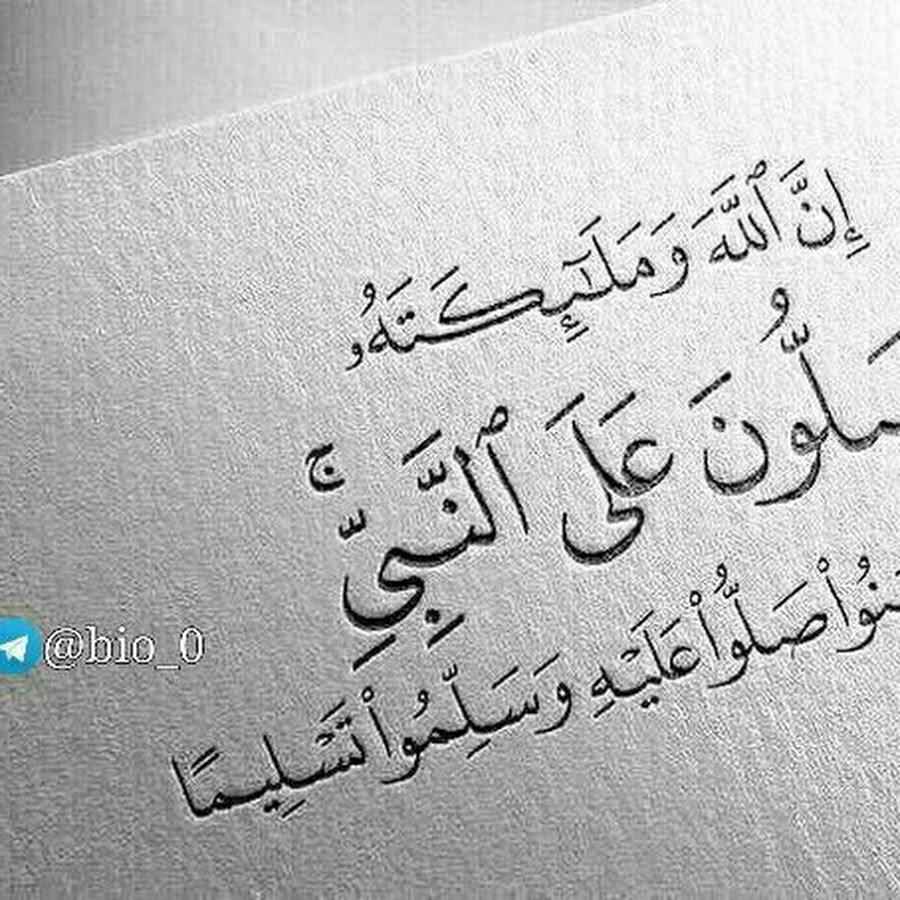 إِنَّ ٱللَّهَ وَمَلَـٰٓئِكَتَهُۥ
صَلُّونَ عَلَى ٱلنَّبِىِّ ۚ
مَنُوا۟ صَلُّوا۟ عَلَيْهِ وَسَلِّمُوا۟ تَسْلِيمًا
@bio_0